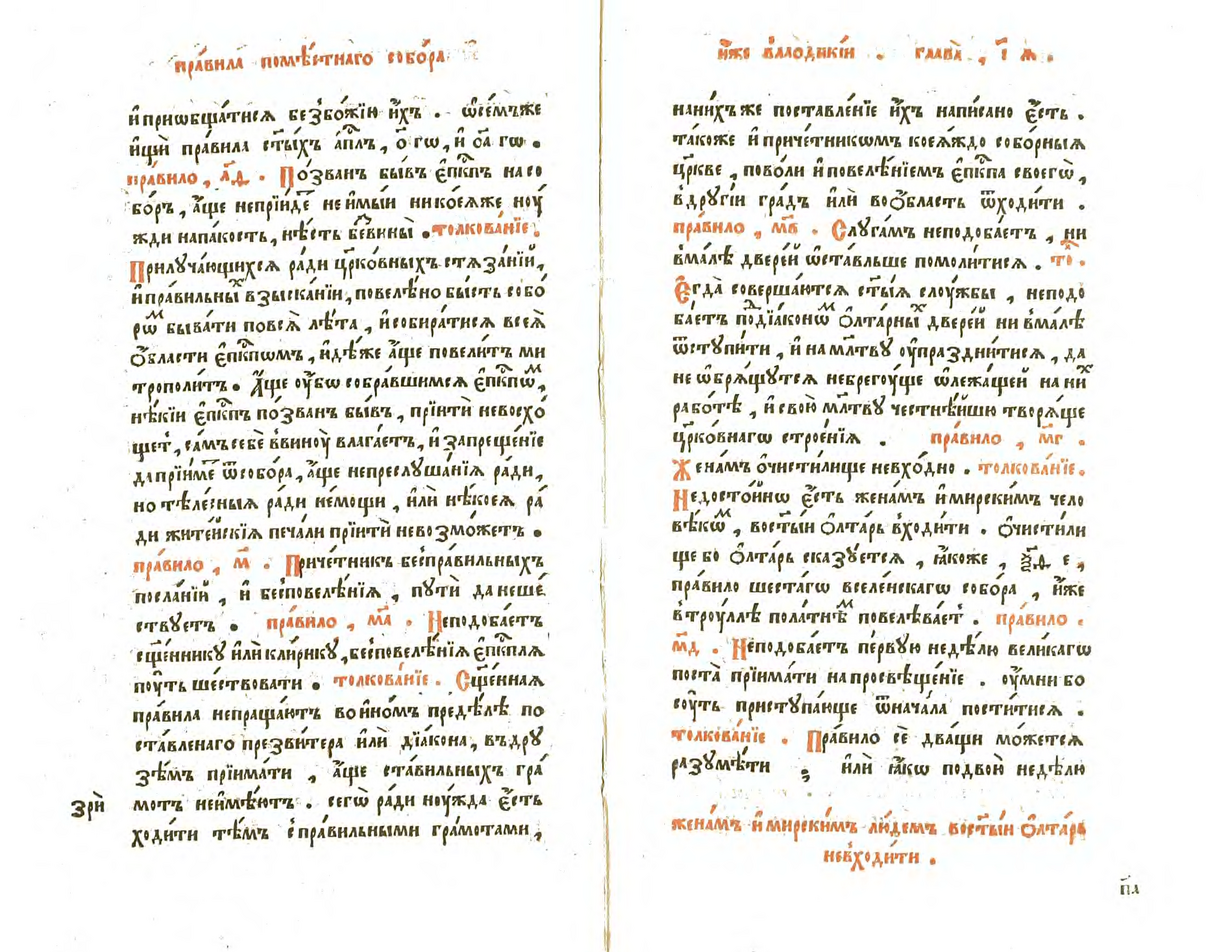 пра́вила помѣ́стнаго собо́ра
и҆приѡбща́тися безбо́жїи и҆́хъ . ѡ҆се́мъже
и҆щѝ пра́вила ст҃ы́хъ а҆п҃лъ , о҃ гѡ , и҆ о҃а гѡ .
пра́вило , л҃ѳ . По́званъ бы́въ є҆п҃кпъ насо
бо́ръ , а҆́ще непрїи́детъ неи҆мы́й нико́еѧже ноу́
жди напа́кость , нѣ́сть безвины̀ . толкова́нїе .
Прилуча́ющихсѧ ра́ди цр҃ко́вныхъ стѧза́нїй ,
и҆пра́вильныхъ взыска́нїи , повелѣ́но бы́сть собо́
рѡмъ быва́ти повсѧ̀ лѣ́та , и҆собира́тисѧ всеѧ̀
ѻ҆́бласти є҆п҃кпѡмъ , и҆дѣ́же а҆́ще повели́тъ ми
трополи́тъ . А҆́ще оу҆́бѡ собра́вшимсѧ є҆п҃кпѡмъ ,
нѣ́кїи є҆п҃кпъ по́званъ бы́въ , прїитѝ невосхо́
щетъ , са́мъ себѐ ввиноу̀ влага́етъ , и҆ запреще́нїе
да прїи́метъ ѿсобо́ра , а҆́ще непреслуша́нїѧ ра́ди ,
но тѣле́сныѧ ра́ди не́мощи , и҆лѝ нѣ́коеѧ ра́
ди жите́йскїѧ печа́ли прїитѝ невозмо́жетъ .
пра́вило , м҃ . Приче́тникъ беспра́вильныхъ
посла́нїй , и҆ бесповелѣ́нїѧ , путѝ да неше́
ствуетъ . пра́вило , м҃а . Неподоба́етъ
сщ҃е́ннику и҆лѝ кли́рику , бесповелѣ́нїѧ є҆п҃кплѧ
поу́ть ше́ствовати . толкова́нїе . Сщ҃е́ннаѧ
пра́вила непраща́ютъ во и҆но́мъ предѣ́лѣ по
ста́вленаго презви́тера и҆лѝ дїа́кона , въ дру
зѣ́мъ прїима́ти , а҆́ще ста́вильныхъ гра́
мотъ неи҆мѣ́ютъ . сегѡ̀ ра́ди ноу́жда є҆́сть
Зрѝ
ходи́ти тѣ́мъ с пра́вильными гра́мотами ,
и҆́же влаоди́кїи . глава̀ , і҃ ѧ .
нани́хъже поставле́нїе и҆́хъ напи́сано є҆́сть .
та́коже и҆ приче́тникѡмъ коеѧ́ждо собо́рныѧ
цр҃кве , поволи и҆ повелѣ́нїемъ є҆п҃кпа своегѡ̀ ,
в дру́гїи гра́дъ и҆лѝ во ѻ҆́бласть ѿходи́ти .
пра́вило , м҃в . Слуга́мъ неподоба́етъ , ни
вма́лѣ две́рей ѡ҆ста́вльше помоли́тисѧ . то .
Є҆гда̀ соверша́ютсѧ ст҃ы́ѧ слоу́жбы , неподо
ба́етъ поддїа́конѡмъ ѻ҆лта́рныхъ две́рей ни вма́лѣ
ѿступи́ти , и҆ на мл҃тву оу҆празднитисѧ , да
не ѡ҆брѧ́щутсѧ небрегоу́ще ѡ҆лежа́щей на ни́хъ
рабо́тѣ , и҆ свою̀ мл҃тву честнѣ́йшю творѧ́ще
цр҃ко́внагѡ строе́нїѧ . пра́вило , м҃г .
Жена́мъ ѻ҆чисти́лище невхо́дно . толкова́нїе .
Недосто́йнѡ є҆́сть жена́мъ и҆ мирски́мъ чело
вѣ́кѡмъ , во ст҃ы́и ѻ҆лта́рь входи́ти . ѻ҆чисти́ли
ще бо ѻ҆лта́рь сказу́етсѧ , ꙗ҆́коже , ѯ҃ѳ е ,
пра́вило шеста́гѡ вселе́нскагѡ собо́ра , и҆́же
в троу́ллѣ пола́тнѣмъ повелѣва́етъ . пра́вило .
м҃д . Неподоба́етъ пе́рвую недѣ́лю вели́кагѡ
поста̀ прїима́ти на просвѣще́нїе . оу҆́мни бо
соу́ть приступа́юще ѿнача́ла пости́тисѧ .
толкова́нїе . Пра́вило сѐ два́щи мо́жетсѧ
разумѣ́ти ; и҆лѝ ꙗ҆́кѡ по двою̀ недѣ́лю
жена́мъ и҆ мирски́мъ лю́демъ во ст҃ы́и ѻ҆лта́рь
невходи́ти .
п҃д